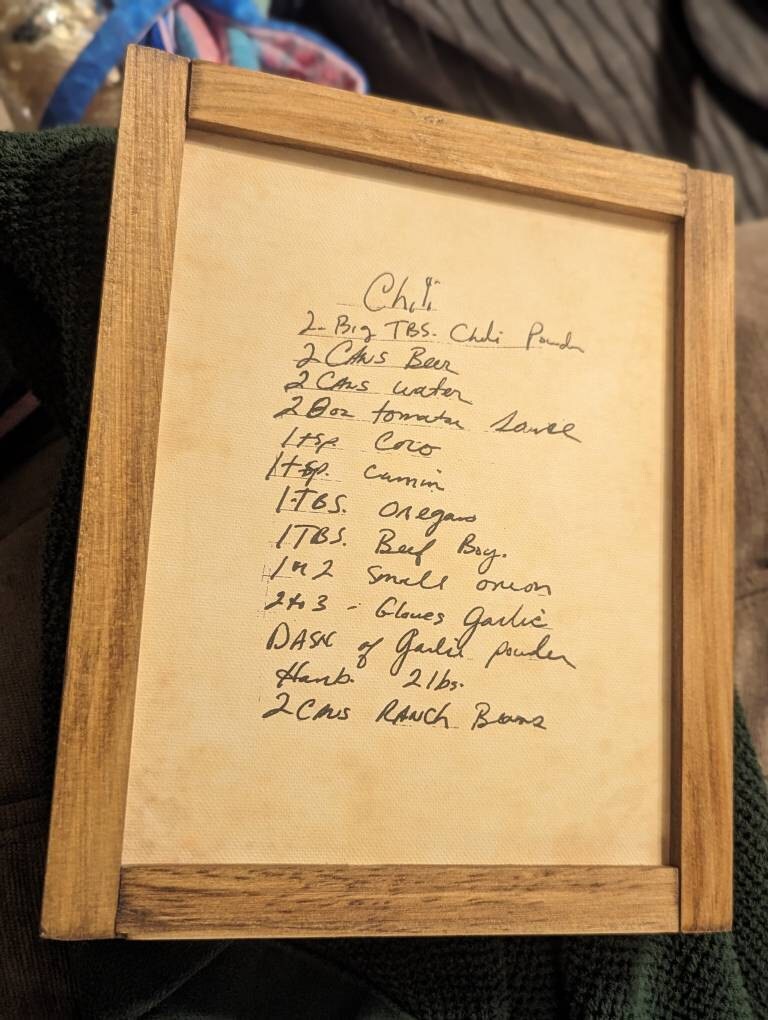 Chili
2- Big TBS. Chili Powder
2 CANS Beer
2 CANS water
2 8oz tomato sauce
1 tsp. Coco
1 tsp. Cumin
1 TBS. Oregano
1 TBS. Beef Boy.
1 or 2 small onion
2 to 3 - Gloves Garlic
DASH of Garlic powder
Hamb. 2 lbs.
2 CANS RANCH Beans